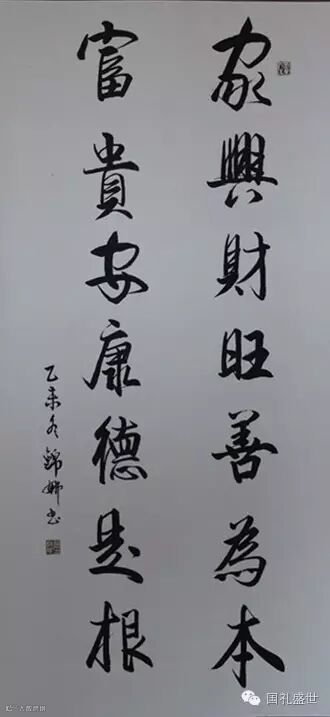 家興財旺善為本
富貴安康德是根
乙未冬錦娜書
国礼盛世